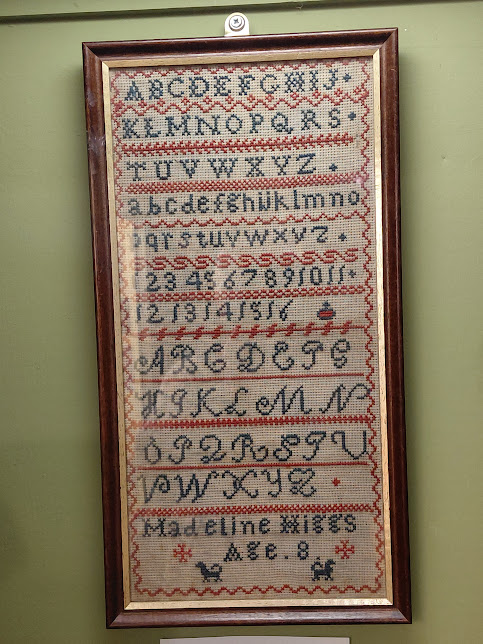 ABCDEFGHIJ
KLMNOPQRS
TUVWXYZ
abcdefghijklmno
pqrstuvwxyz
1234567891011
1213141516
ABCDEFG
HIJKLMN
OPQRSTU
VWXYZ
Madeline Higgs
Age. 8.